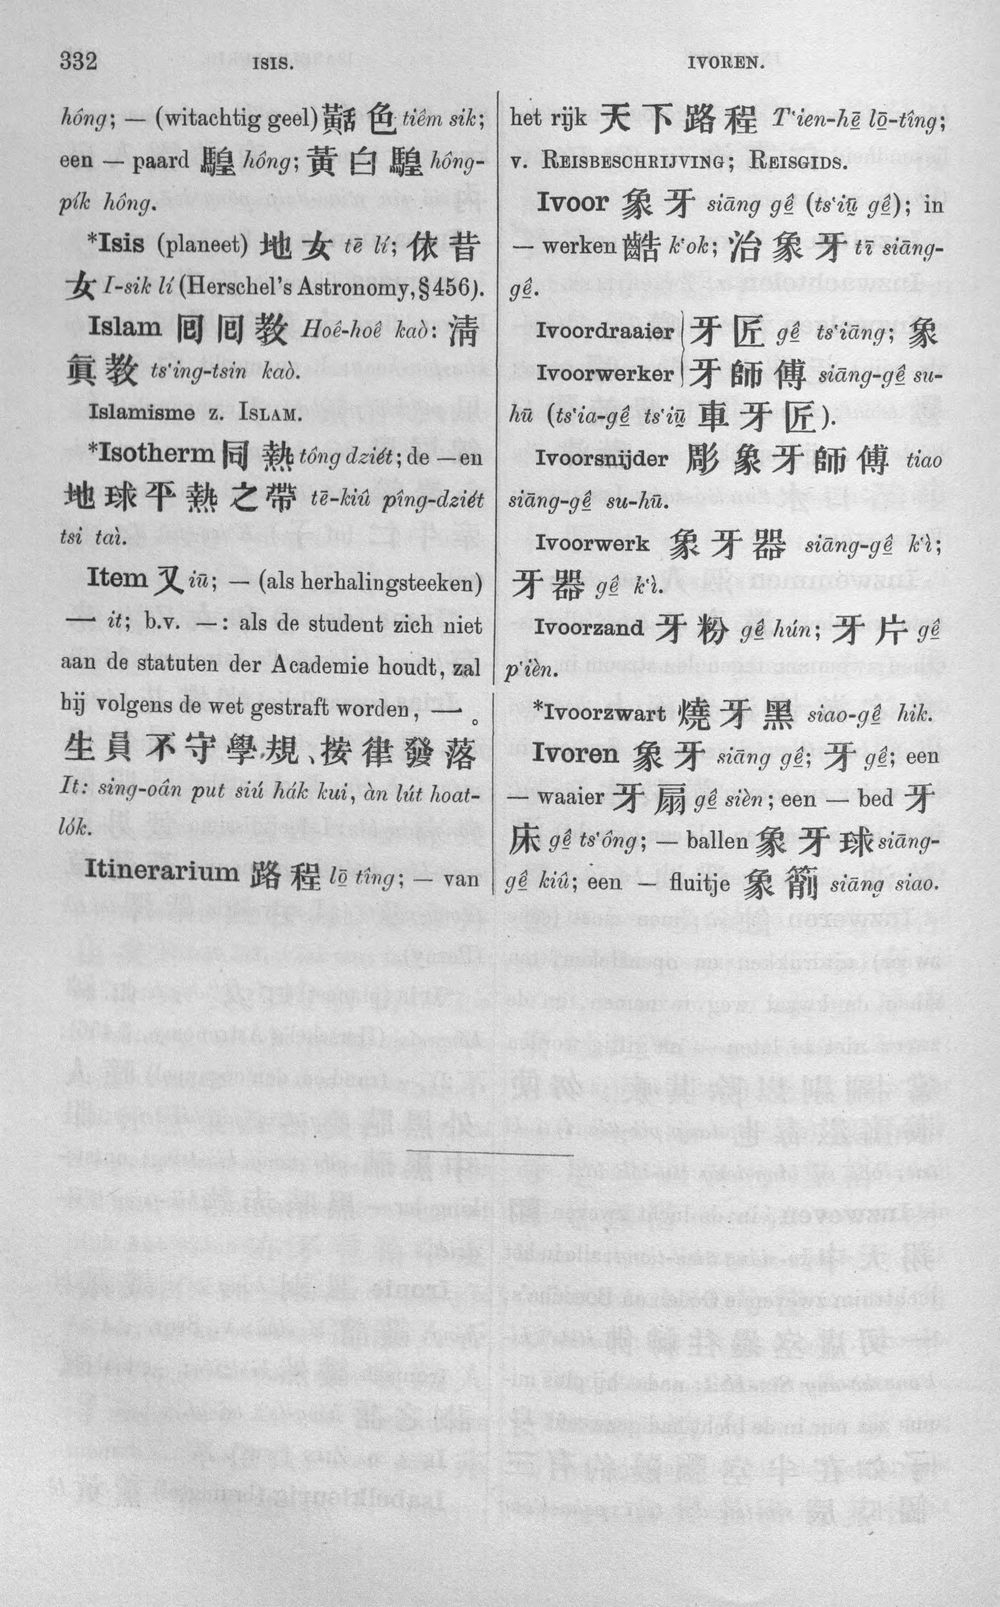 332
ISIS.
IVOREN.
hông; — (witachtig geel) 黃舌 色 tiêm sik;
een — paard 騜 hông; 黃白騜 hông-
pík hông.
*Isis (planeet) 地女 tē lí; 依昔
女 I-sik lí (Herschel's Astronomy, § 456).
Islam 囘囘教 Hoê-hoê kaò: 淸
眞教 ts'ing-tsin kaò.
Islamisme z. ISLAM.
*Isotherm 同熱 tông dziét; de — en
地球平熱之帶 tē-kiû pîng-dziét
tsi taì.
Item 又 iū; — (als herhalingsteeken)
一 it; b.v. —: als de student zich niet
aan de statuten der Academie houdt, zal
hij volgens de wet gestraft worden, 一。
生員不守學規、按律發落
It: sing-oân put siú hák kui, àn lút hoat-
lók.
Itinerarium 路程 lō tîng; — van
het rijk 天下路程 T'ien-hē lō-tîng;
v. REISBESCHRIJVING; REISGIDS.
Ivoor 象牙 siāng gê (ts'iū gê); in
— werken 齰 k'ok; 治象牙 tī siāng-
gê.
Ivoordraaier 牙匠 gê ts'iāng; 象
Ivoorwerker 牙師傅 siāng-gê su-
hū (ts'ia-gê ts'iū 車牙匠).
Ivoorsnijder 彫象牙師傅 tiao
siāng-gê su-hū.
Ivoorwerk 象牙器 siāng-gê k'ì;
牙器 gê k'ì.
Ivoorzand 牙粉 gê hún; 牙片 gê
p'ièn.
*Ivoorzwart 燒牙黑 siao-gê hik.
Ivoren 象牙 siāng gê; 牙 gê; een
— waaier 牙扇 gê sièn; een — bed 牙
床 gê ts'ông; — ballen 象牙球 siāng-
gê kiû; een — fluitje 象箾 siāng siao.